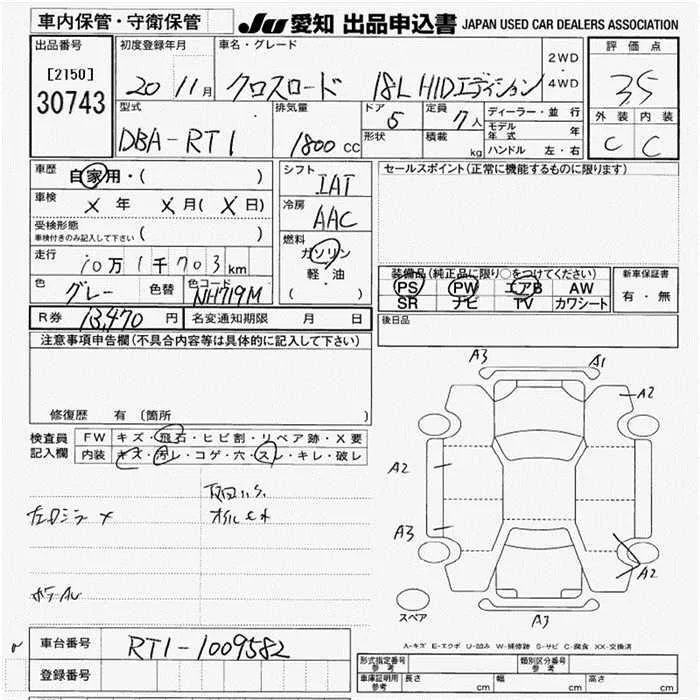 車内保管・守衛保管
JU 愛知 出品申込書 JAPAN USED CAR DEALERS ASSOCIATION
出品番号
[2150]
30743
初度登録年月
20 11 月
車名・グレード
クロスロード 18L HIDエディション
2WD
・
4WD
評価点
3.5
外装 内装
C C
型式
DBA-RT1
排気量
1800 CC
ドア
5
定員
7 人
形状
積載
kg
ディーラー・並行
モデル年式 年
ハンドル 左・右
車歴
自家用・( )
車検
X 年 X 月 ( X 日)
受検形態
車検付きのみ記入して下さい ( )
走行
10万1千703 km
色
グレー
色替
色コード
NH719M
シフト
IAT
冷房
AAC
燃料
ガソリン
軽・油
( )
セールスポイント(正常に機能するものに限ります)
装備品(純正品に限り○をつけてください)
PS PW エアB AW
SR ナビ TV カワシート
新車保証書
有・無
R券 13,470 円
名変通知期限 月 日
後日品
注意事項申告欄(不具合内容等は具体的に記入して下さい)
修復歴 有 〔箇所 〕
検査員
記入欄
FW キズ・飛石・ヒビ割・リペア跡・X要
内装 キズ・汚レ・コゲ・穴・スレ・キレ・破レ
A3 A1
A2
A2
A3
A2
A3
スペア
A-キズ E-エクボ U-凹み W-補修跡 S-サビ C-腐食 XX-交換済
車台番号
RT1-1009582
登録番号
形式指定番号
参考
類別区分番号
参考
車庫証明用
参考
長さ cm 幅 cm 高さ cm